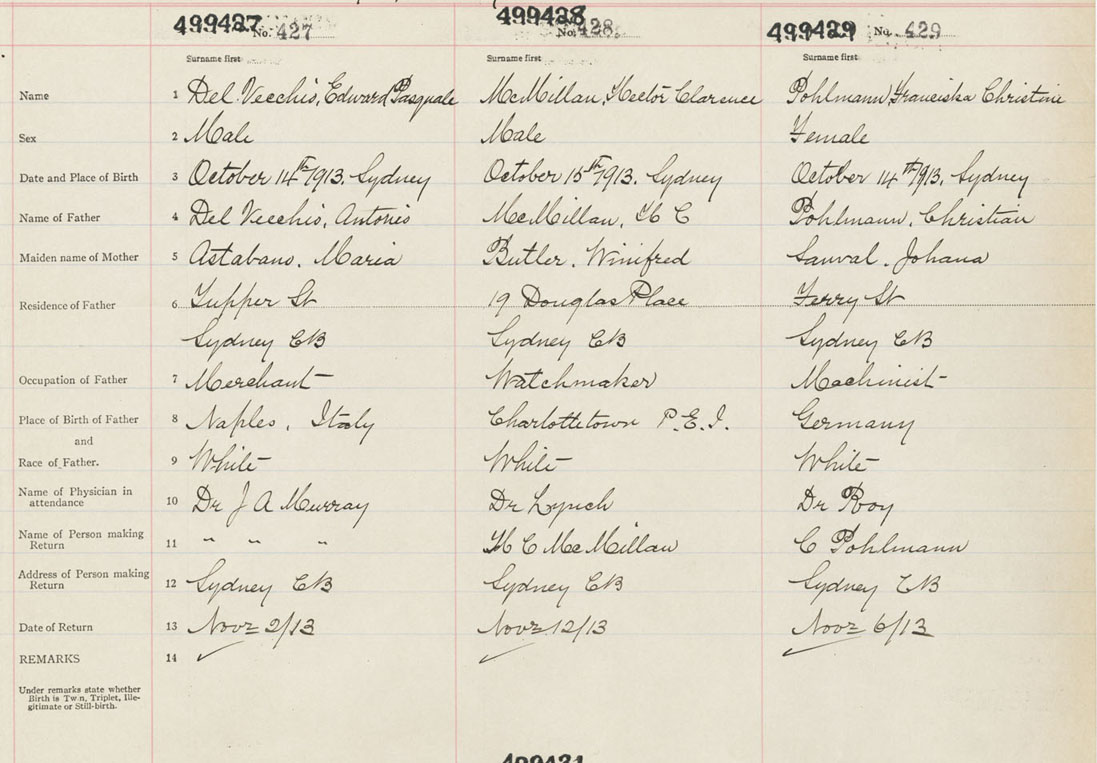 499427 No. 427 499428 No. 428 499429 No. 429
Surname first Surname first Surname first
Name 1 Del Vecchio, Edward Pasquale McMillan, Hector Clarence Pohlmann, Franciska Christine
Sex 2 Male Male Female
Date and Place of Birth 3 October 14th 1913. Sydney October 15th 1913. Sydney October 14th 1913. Sydney
Name of Father 4 Del Vecchio, Antonio McMillan, H C Pohlmann, Christian
Maiden name of Mother 5 Astabano. Maria Butler. Winifred Sauval. Johana
Residence of Father 6 Tupper St 19 Douglas Place Ferry St
Sydney CB Sydney CB Sydney CB
Occupation of Father 7 Merchant Watchmaker Machinist
Place of Birth of Father 8 Naples, Italy Charlottetown P.E.I. Germany
and
Race of Father. 9 White White White
Name of Physician in
attendance 10 Dr J A Murray Dr Lynch Dr Roy
Name of Person making
Return 11 " " " H C McMillan C Pohlmann
Address of Person making
Return 12 Sydney CB Sydney CB Sydney CB
Date of Return 13 Novr 2/13 Novr 12/13 Novr 6/13
REMARKS 14
Under remarks state whether
Birth is Twin, Triplet, Ille-
gitimate or Still-birth.